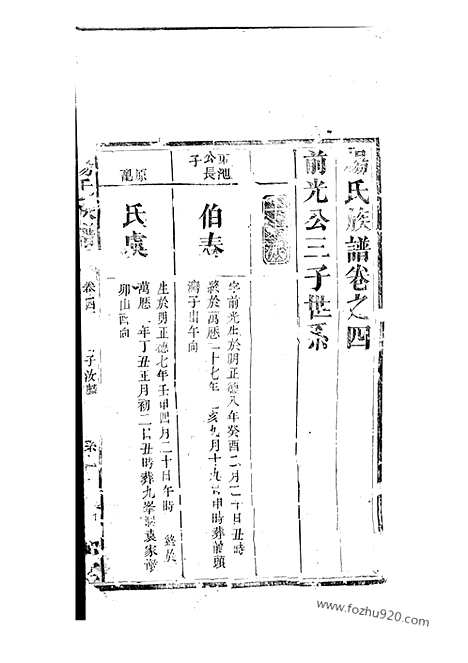 楊氏族譜卷之四
前光公三子世系
池公長子
伯春
字前光生於明正德八年癸酉二月二十日丑時
歿於萬歷二十七年亥九月十九日申時葬前頭
灣子山午向
原配
氏虞
生於明正德七年壬申四月二十日午時 歿於
萬歷年丁丑正月初二日丑時葬九峯袁家
卯山酉向
楊氏族譜
卷四
子汝
www.fozhu920.com